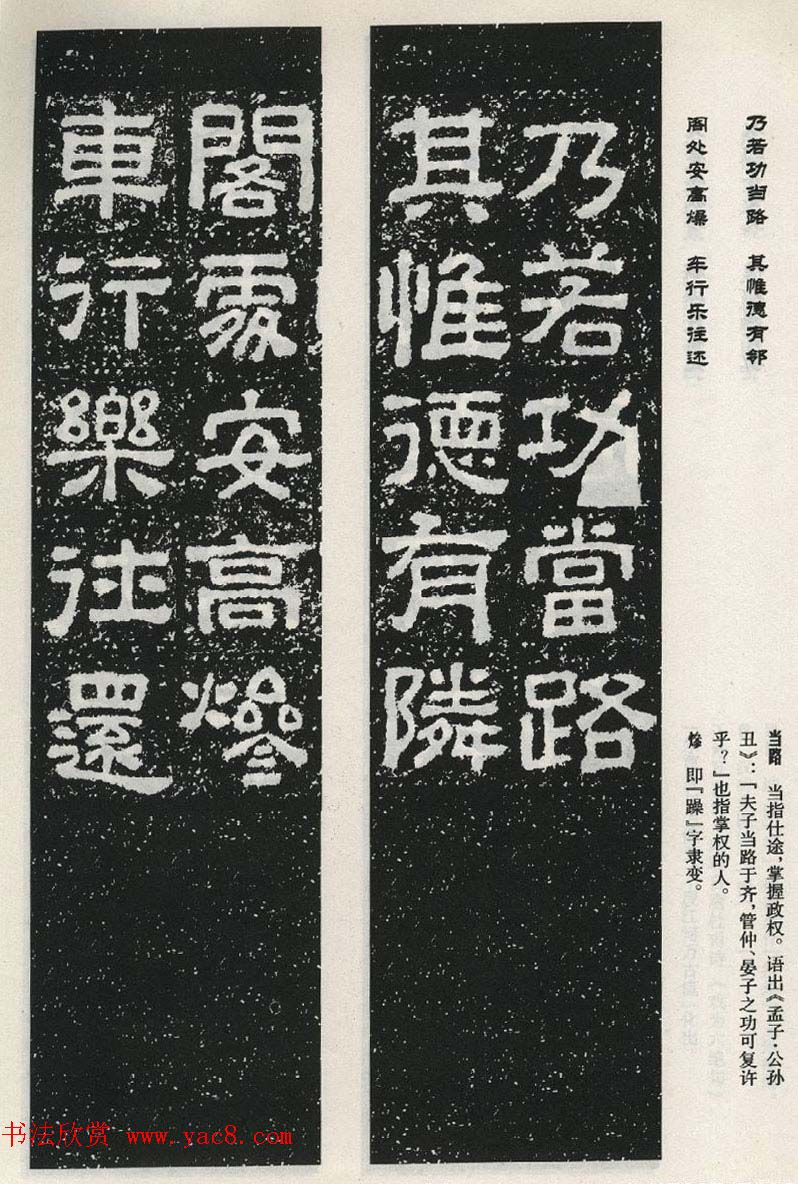 乃若功當路
其惟德有隣
閣處安高㷎
車行樂往還
乃若功当路 其惟德有邻
阁处安高燥 车行乐往还
当路 当指仕途,掌握政权。语出《孟子·公孙
丑》:「夫子当路于齐,管仲、晏子之功可复许
乎?」也指掌权的人。
即「躁」字隶变。
书法欣赏 www.yac8.com